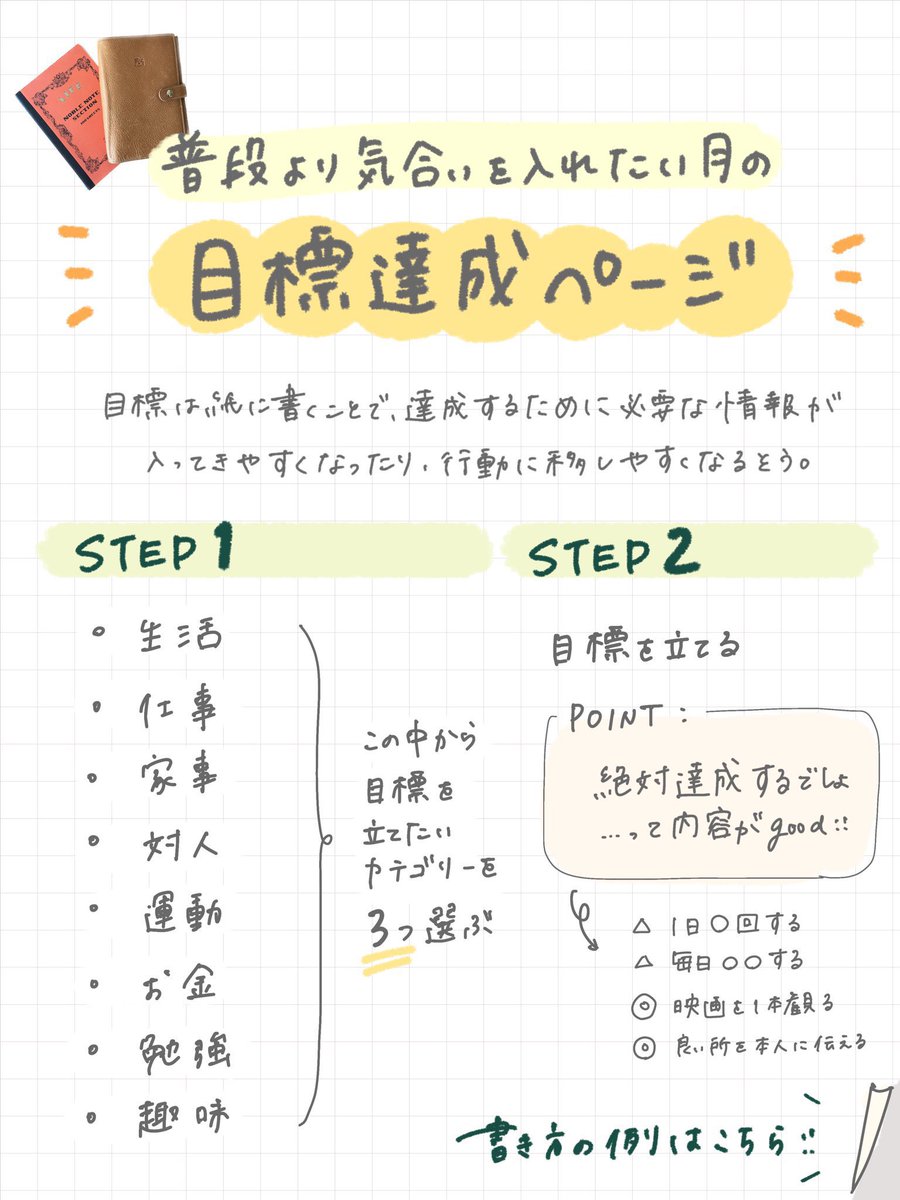 NOBLE NOTE
SECTION
普段より気合いを入れたい月の
目標達成ページ
目標は紙に書くことで、達成するために必要な情報が
入ってきやすくなったり、行動に移しやすくなるそう。
STEP 1
・生活
・仕事
・家事
・対人
・運動
・お金
・勉強
・趣味
この中から
目標を
立てたい
カテゴリーを
3つ選ぶ
STEP 2
目標を立てる
POINT :
絶対達成するでしょ
...って内容がgood!!
△ 1日〇回する
△ 毎日〇〇する
◎ 映画を1本観る
◎ 良い所を本人に伝える
書き方の例はこちら!!